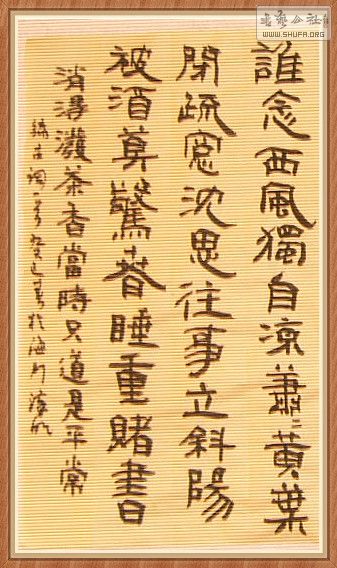 誰念西風獨自涼蕭〻黃葉
閉疏窗沈思往事立斜陽
被酒莫驚春睡重賭書
消得潑茶香當時只道是平常
錄古詞一首癸巳春於海
书艺公社
WWW.SHUFA.ORG